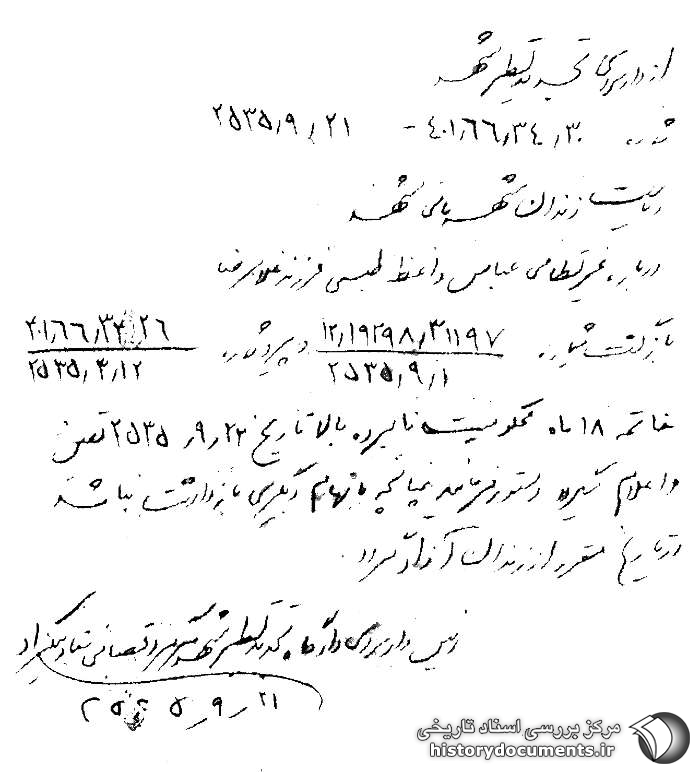 از دادسرای تجدید نظر مشهد
شماره ۴۰۱٫۶۶٫۳۴٫۳۰ - ۲۵۳۵٫۹٫۲۱
ریاست زندان شهربانی مشهد
درباره غیرنظامی عباس واعظ طبسی فرزند غلامرضا
بازگشت شماره ۱۲٫۱۹۲۹۸٫۳۱۱۹۷ و پیرو شماره ۴۰۱٫۶۶٫۳۴٫۲۶
۲۵۳۵٫۹٫۱ ۲۵۳۵٫۴٫۱۲
خاتمه ۱۸ ماه محکومیت نامبرده بالا تاریخ ۲۳٫۹٫۲۵۳۵ تعیین
و اعلام گردیده دستور فرمائید چنانچه باتهام دیگری بازداشت نباشد
در تاریخ مقرر از زندان آزاد گردد.
رئیس دادسرای دادگاه تجدید نظر مشهد سرهنگ قضائی
۲۵۳۵٫۹٫۲۱
مرکز بررسی اسناد تاریخی
historydocuments.ir